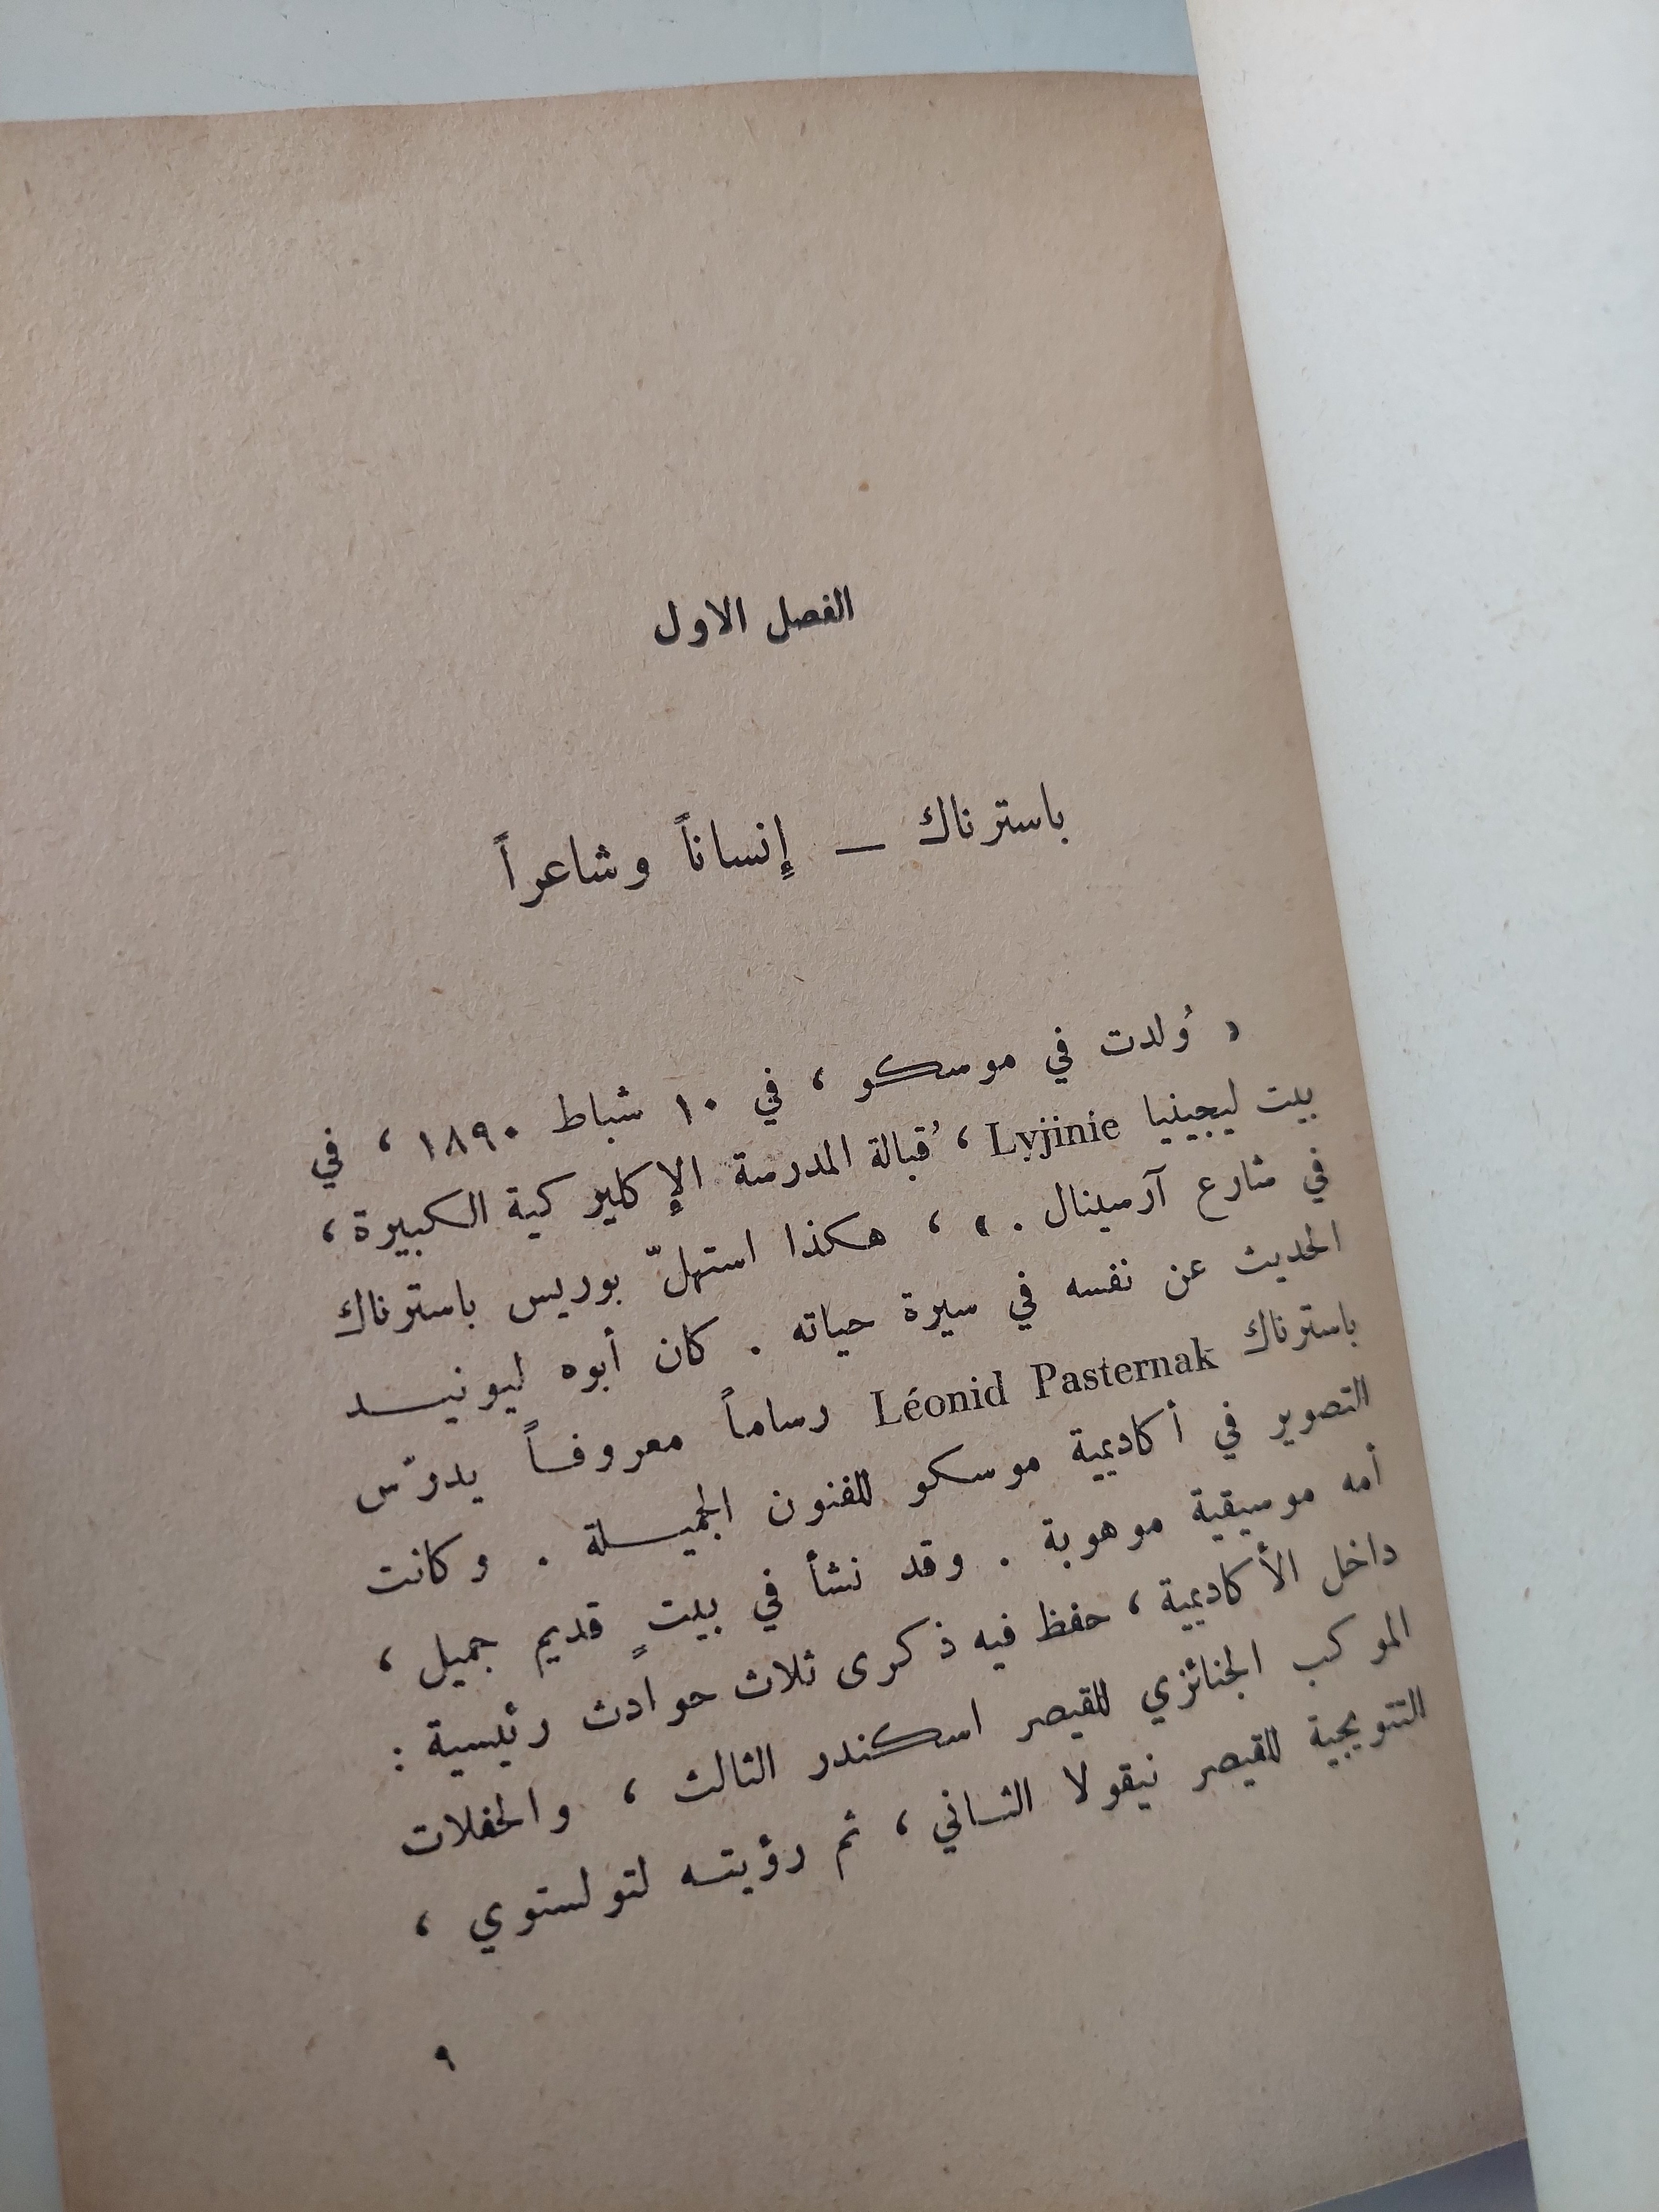 الفصل الاول
باسترناك – إنساناً وشاعراً
« وُلدت في موسكو ، في ١٠ شباط ١٨٩٠ ، في
بيت ليجينيا Lyjinie ، قُبالة المدرسة الإكليركية الكبيرة ،
في شارع آرسينال . » ، هكذا استهلّ بوريس باسترناك
الحديث عن نفسه في سيرة حياته . كان أبوه ليونيد
باسترناك Léonid Pasternak رساماً معروفاً يدرّس
التصوير في أكاديمية موسكو للفنون الجميلة . وكانت
أمه موسيقية موهوبة . وقد نشأ في بيتٍ قديم جميل ،
داخل الأكاديمية ، حفظ فيه ذكرى ثلاث حوادث رئيسية :
الموكب الجنائزي للقيصر اسكندر الثالث ، والحفلات
التتويجية للقيصر نيقولا الثاني ، ثم رؤيته لتولستوي ،
٩